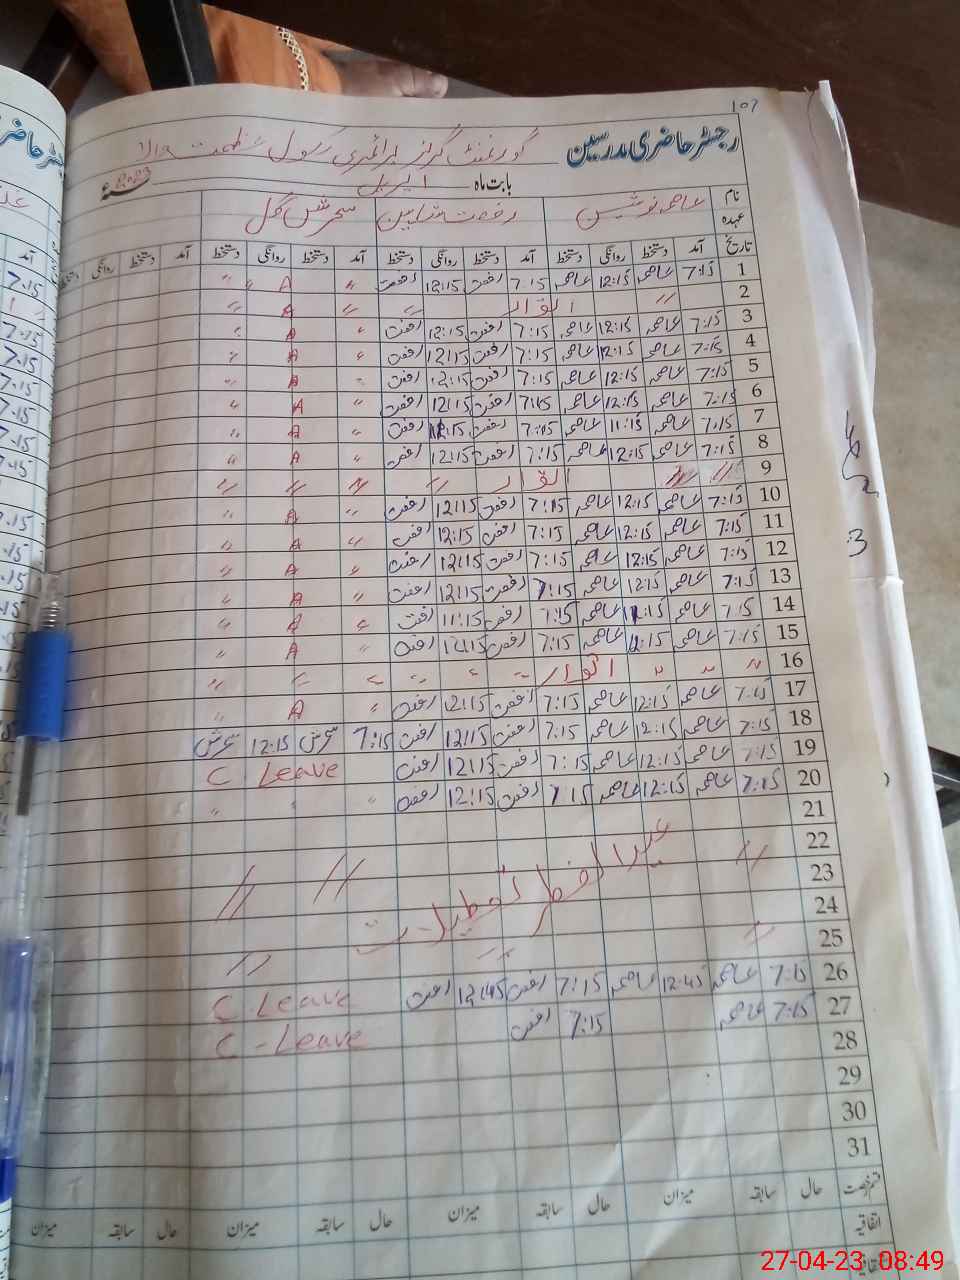 107
رجسٹر حاضری مدرسین گورنمنٹ گرلز پرائمری سکول عظمت والا
بابت ماہ اپریل 2023ء
نام عاصمہ نورشین رفعت شاہین سحرش گل
عہدہ
تاریخ آمد دستخط روانگی دستخط آمد دستخط روانگی دستخط آمد دستخط روانگی دستخط آمد دستخط روانگی دستخط
1 7:15 عاصمہ 12:15 عاصمہ 7:15 رفعت 12:15 رفعت " A " "
2 " اتوار " " A "
3 7:15 عاصمہ 12:15 عاصمہ 7:15 رفعت 12:15 رفعت " A "
4 7:15 عاصمہ 12:15 عاصمہ 7:15 رفعت 12:15 رفعت " A "
5 7:15 عاصمہ 12:15 عاصمہ 7:15 رفعت 12:15 رفعت " A "
6 7:15 عاصمہ 12:15 عاصمہ 7:15 رفعت 12:15 رفعت " A "
7 7:15 عاصمہ 11:15 عاصمہ 7:15 رفعت 12:15 رفعت " A "
8 7:15 عاصمہ 12:15 عاصمہ 7:15 رفعت 12:15 رفعت " A "
9 " " اتوار " " " "
10 7:15 عاصمہ 12:15 عاصمہ 7:15 رفعت 12:15 رفعت " A "
11 7:15 عاصمہ 12:15 عاصمہ 7:15 رفعت 12:15 رفعت " A "
12 7:15 عاصمہ 12:15 عاصمہ 7:15 رفعت 12:15 رفعت " A "
13 7:15 عاصمہ 12:15 عاصمہ 7:15 رفعت 12:15 رفعت " A "
14 7:15 عاصمہ 11:15 عاصمہ 7:15 رفعت 11:15 رفعت " A "
15 7:15 عاصمہ 12:15 عاصمہ 7:15 رفعت 12:15 رفعت " A "
16 " " " اتوار " " " " " "
17 7:15 عاصمہ 12:15 عاصمہ 7:15 رفعت 12:15 رفعت " A "
18 7:15 عاصمہ 12:15 عاصمہ 7:15 رفعت 12:15 رفعت 7:15 سحرش 12:15 سحرش
19 7:15 عاصمہ 12:15 عاصمہ 7:15 رفعت 12:15 رفعت C Leave
20 7:15 عاصمہ 12:15 عاصمہ 7:15 رفعت 12:15 رفعت " " "
21
22
23 " عید الفطر تعطیلات " "
24
25 " " "
26 7:15 عاصمہ 12:45 عاصمہ 7:15 رفعت 12:45 رفعت C. Leave
27 7:15 عاصمہ 7:15 رفعت C - Leave
28
29
30
31
قسم رخصت حال سابقہ میزان حال سابقہ میزان حال سابقہ میزان حال سابقہ میزان
اتفاقیہ
27-04-23 08:49